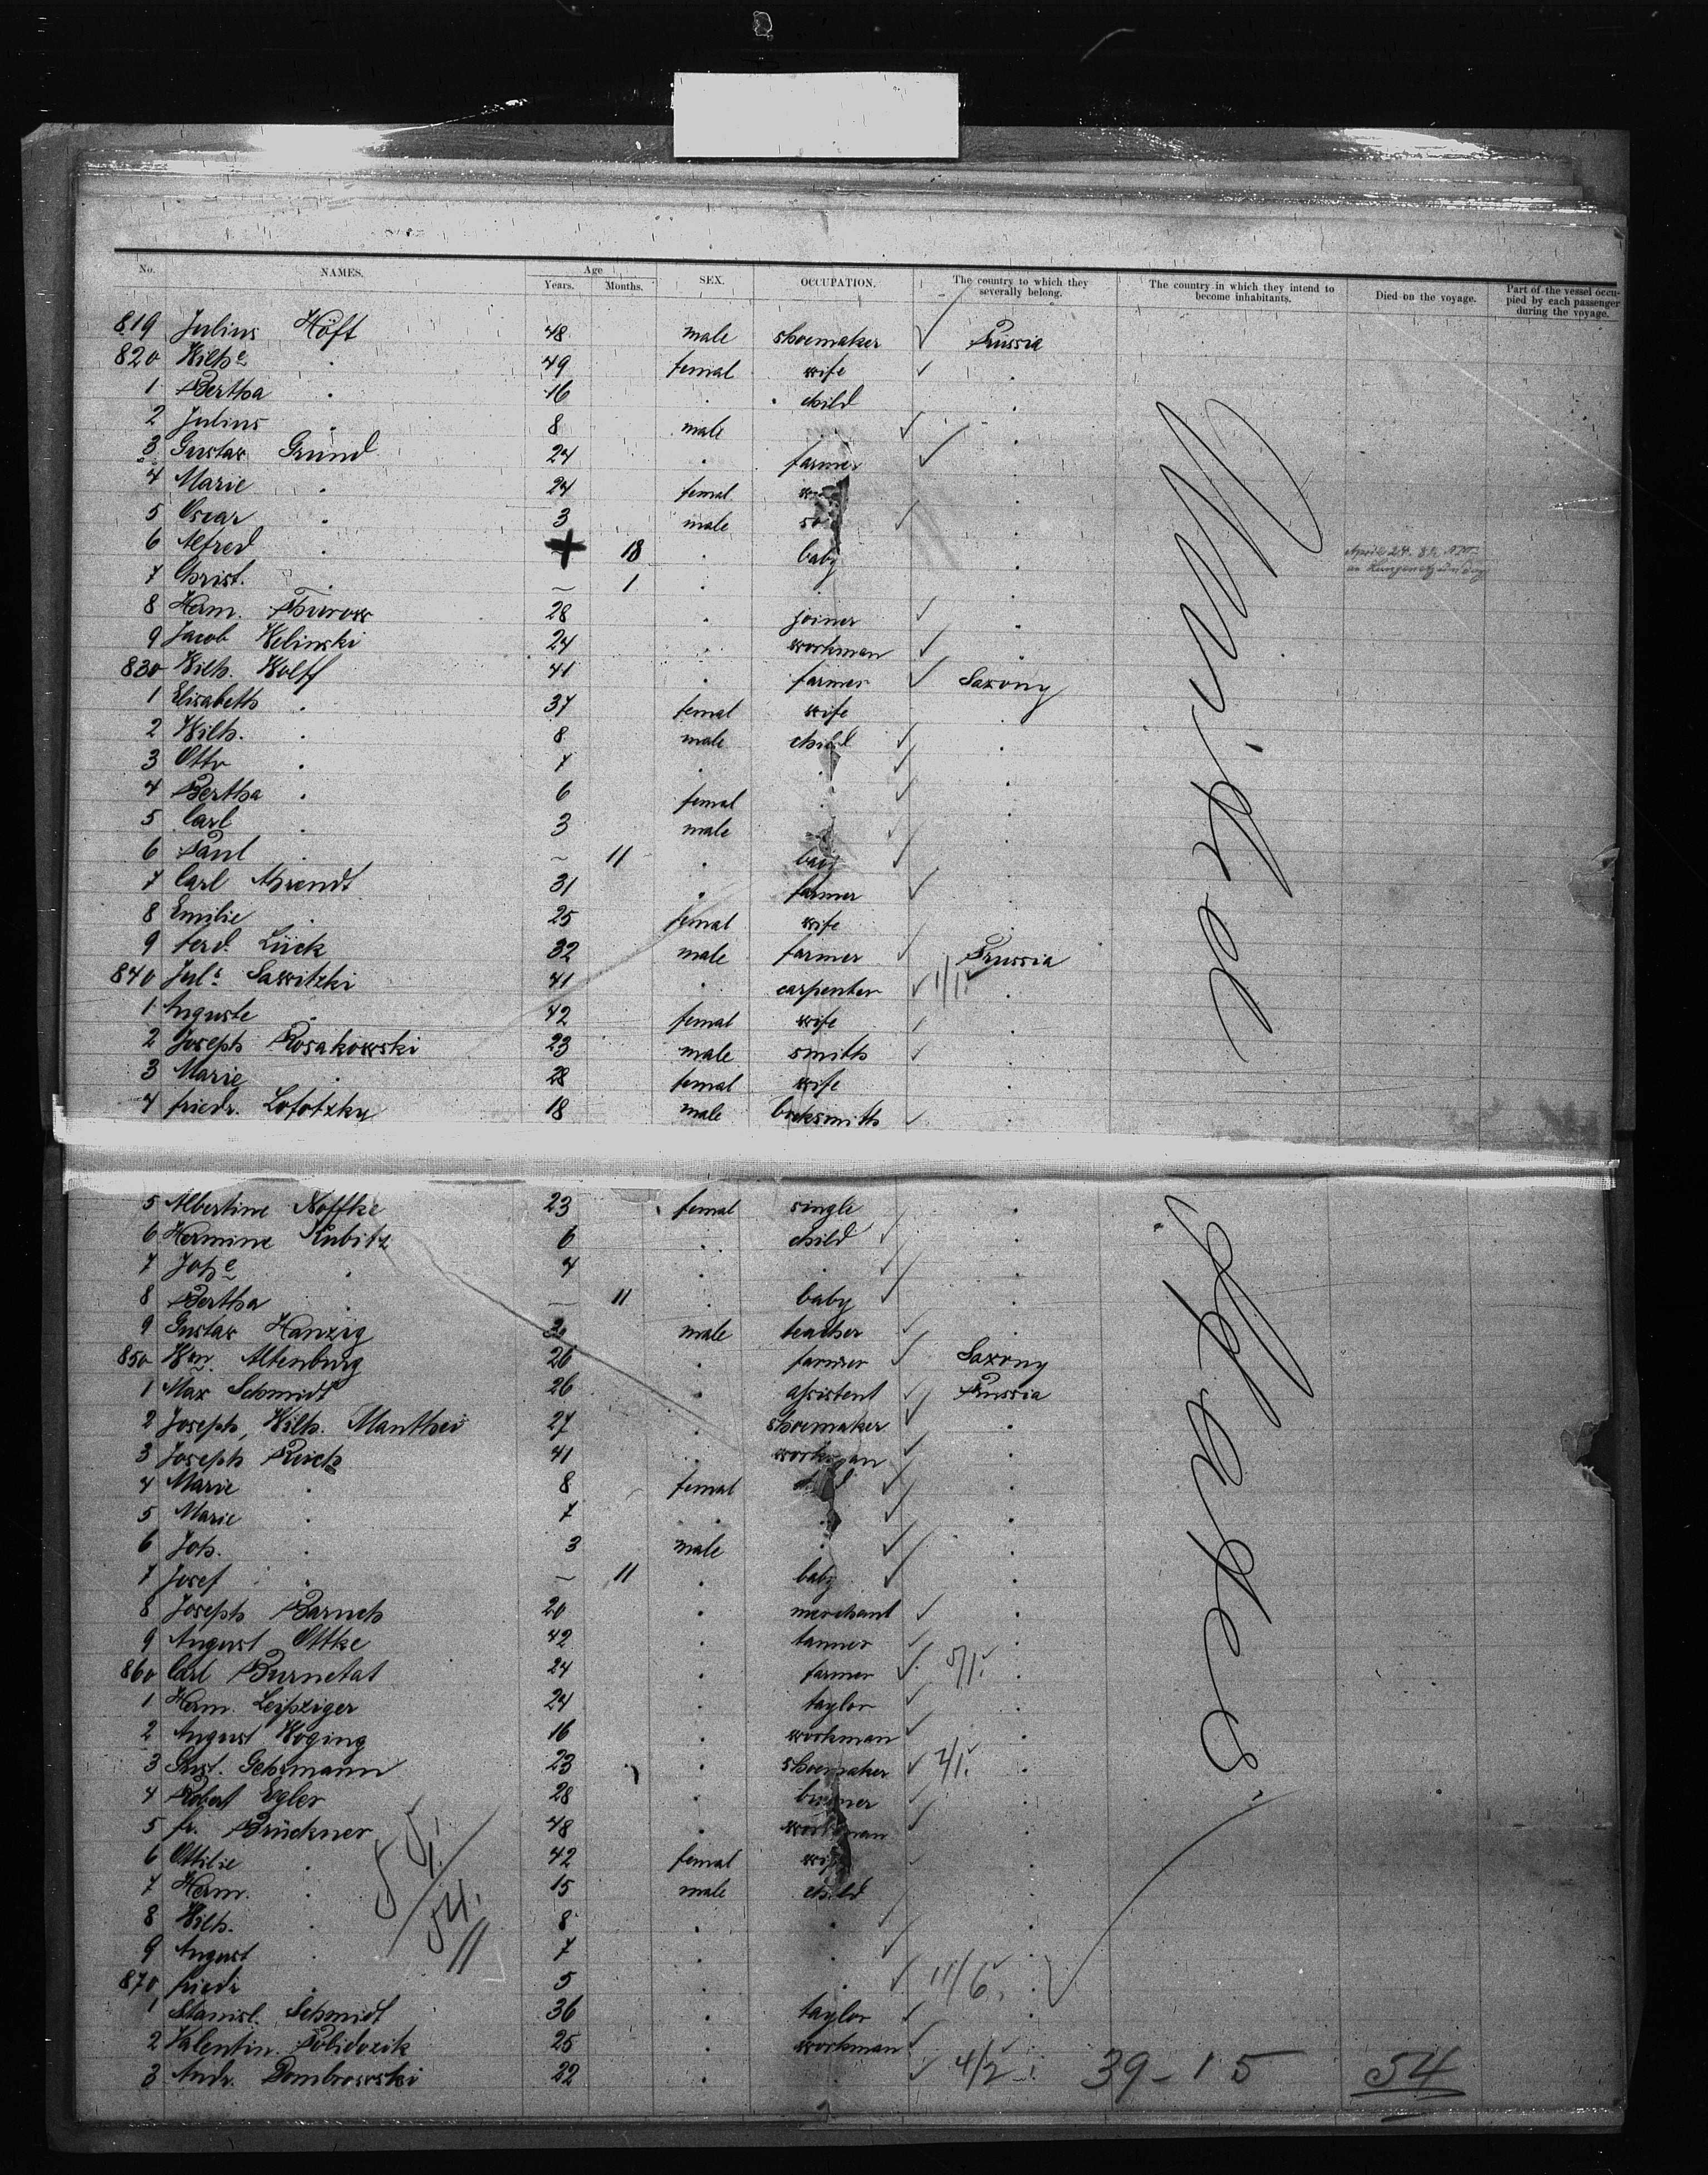 No. NAMES. Age Years. Months. SEX. OCCUPATION. The country to which they severally belong. The country in which they intend to become inhabitants. Died on the voyage. Part of the vessel occupied by each passenger during the voyage.
819 Julius Höft 48 male shoemaker Prussia
820 Wilhe " 49 femal wife "
1 Bertha " 16 " child "
2 Julius " 8 male " "
3 Gustav Grund 24 " farmer "
4 Marie " 24 femal "
5 Oscar " 3 male "
6 Alfred " + 18 " baby " April 24.
7 Christ. " – 1 " " "
8 Herm. Thurow 28 " joiner "
9 Jacob Welinski 24 " workman "
830 Wilh. Wolff 41 " farmer Saxony
1 Elisabeth " 37 femal wife "
2 Wilh. " 8 male child "
3 Otto " 7 " " "
4 Bertha " 6 femal " "
5 Carl " 3 male "
6 Paul " – 11 " baby "
7 Carl Ahrendt 31 " farmer "
8 Emilie " 25 femal wife "
9 Ferd. Lück 32 male farmer Prussia
840 Juls Sawitzki 41 " carpenter 1/1. "
1 Auguste " 42 femal wife "
2 Joseph Rosakowski 23 male smith "
3 Marie " 28 femal wife "
4 Friedr. Lofotzky 18 male locksmith "
5 Albertine Noffke 23 femal single "
6 Hermine Kubitz 6 " child "
7 Johe " 4 " " "
8 Bertha " — 11 " baby "
9 Gustav Hanzig male teacher "
850 Wm. Altenburg 26 " farmer Saxony
1 Max Schmidt 26 " assistent Prussia
2 Joseph, Wilh. Manthei 27 " shoemaker "
3 Joseph Reich 41 " workman "
4 Marie " 8 femal child "
5 Marie " 7 " " "
6 Joh. " 3 male " "
7 Josef " – 11 " baby "
8 Joseph Baruch 20 " merchant "
9 August Ottke 42 " tanner "
860 Carl Burnetat 24 " farmer 5/1. "
1 Herm. Leipziger 24 " taylor "
2 August Höging 16 " workman "
3 Gust. Gehrmann 23 " shoemaker 2/1. "
4 Robert Egler 28 " "
5 Fr. Brückner 48 " workman "
6 Ottilie " 42 femal wife "
7 Herm. " 15 male child "
8 Wilh. " 8 " " "
9 August " 7 " " "
870 Friedr " 5 " " 11/6. "
1 Stanisl. Schmidt 36 " taylor "
2 Valentin Polidozik 25 " workman "
3 Andr. Dombrowski 22 " " 4/2 "
39-15 54
54.
11